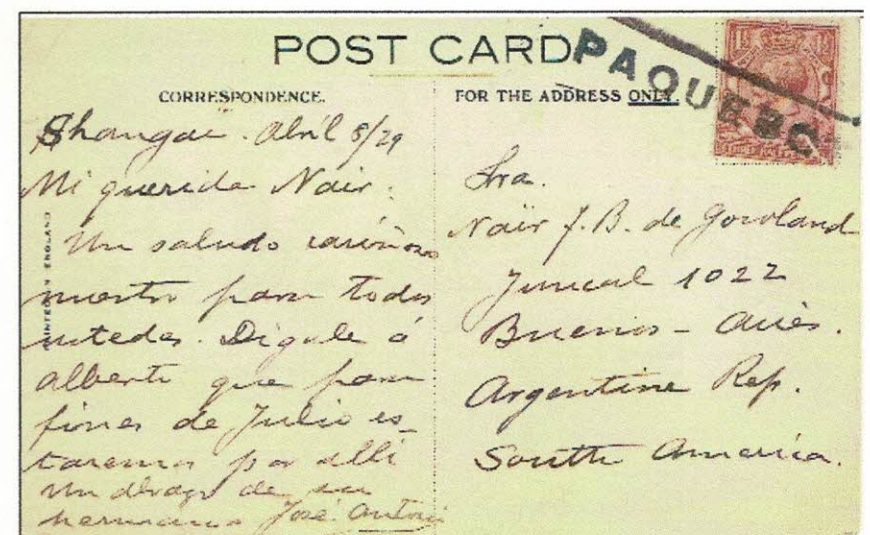 POST CARD
PAQUEBOT
CORRESPONDENCE.
FOR THE ADDRESS ONLY.
Shangaï. Abril 8/29
Mi querida Naïr:
Un saludo cariñoso
nuestro para todos
ustedes. Digale á
Alberto que para
fines de Julio es-
taremos por allí
Un abrazo de su
hermano José Antonio
PRINTED IN ENGLAND
Sra.
Naïr J. B. de Gowland
Juncal 1022
Buenos-Aires.
Argentine Rep.
South America.